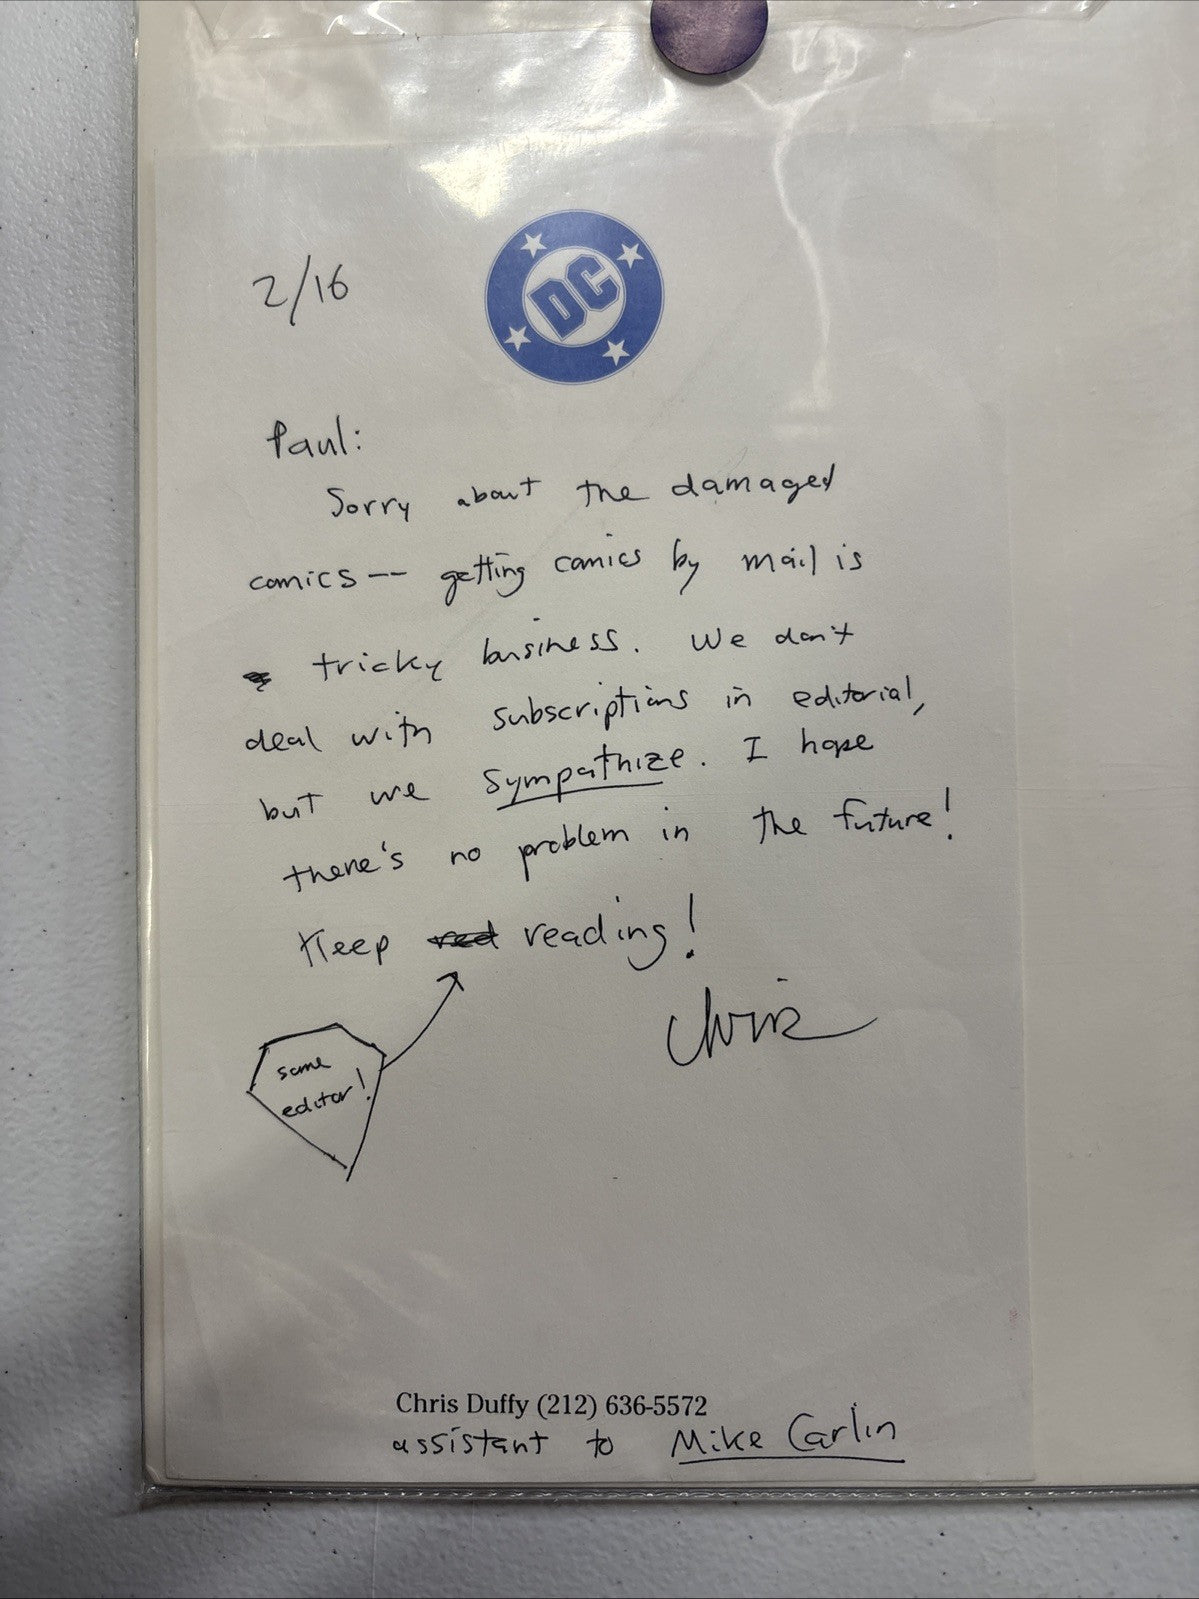 DC
2/16
Paul:
Sorry about the damaged
comics -- getting comics by mail is
tricky business. We don't
deal with subscriptions in editorial,
but we sympathize. I hope
there's no problem in the future!
Keep red reading!
Chris
some
editor!
Chris Duffy (212) 636-5572
assistant to Mike Carlin